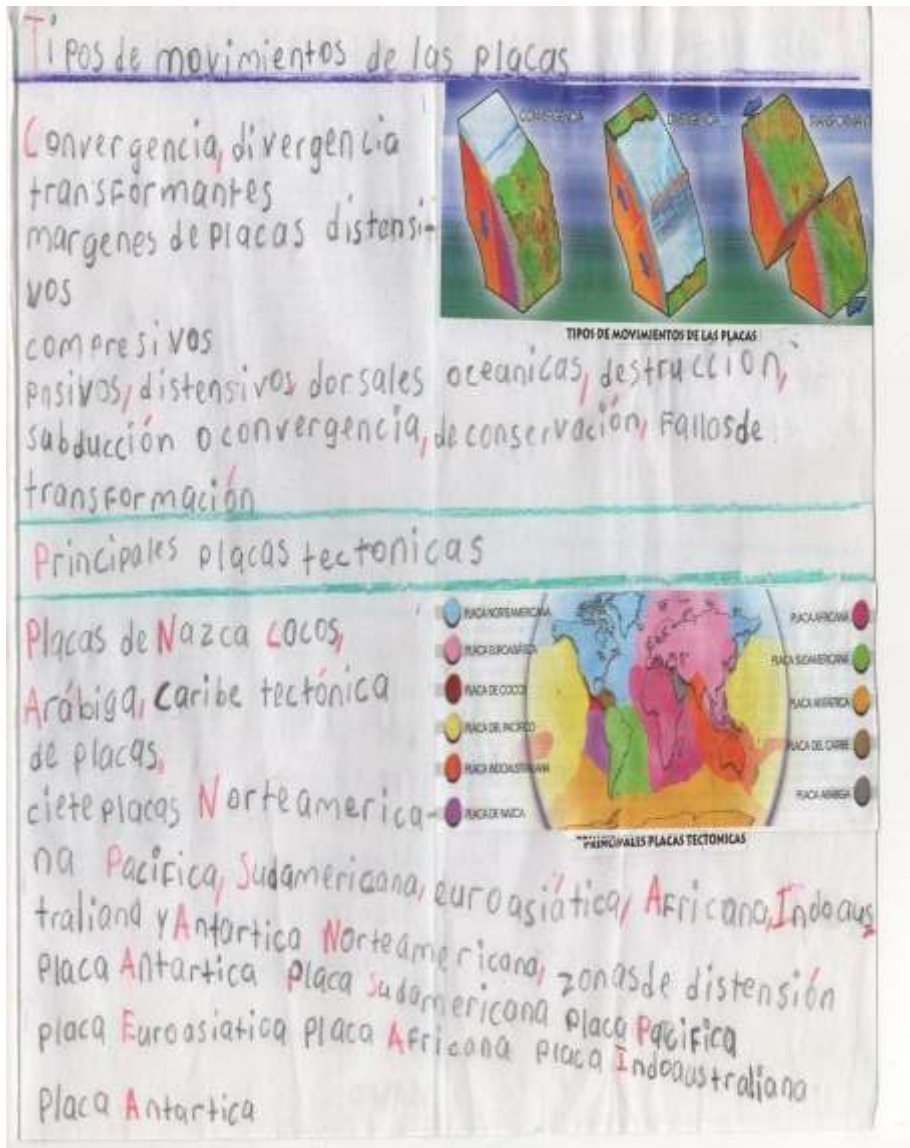 Tipos de movimientos de las placas
Convergencia, divergencia
transformantes
margenes de placas distensi-
vos
compresivos
ensivos, distensivos dorsales oceanicas, destrucción,
subducción o convergencia, de conservación, Fallas de
transformación
CONVERGENCIA
DIVERGENCIA
TRANSFORMANTE
TIPOS DE MOVIMIENTOS DE LAS PLACAS
Principales placas tectonicas
Placas de Nazca Cocos,
Arábiga, caribe tectónica
de placas,
ciete placas Norteamerica-
na Pacifica, Sudamericana, euroasiática, Africana, Indoaus
traliana y Antartica Norteamericana, zonas de distensión
Placa Antartica Placa Sudamericana Placa Pacifica
placa Euroasiatica placa Africana placa Indoaustraliana
Placa Antartica
PLACA NORTEAMERICANA
PLACA EUROASIÁTICA
PLACA DE COCOS
PLACA DEL PACIFICO
PLACA INDOAUSTRALIANA
PLACA DE NAZCA
PLACA AFRICANA
PLACA SUDAMERICANA
PLACA ANTÁRTICA
PLACA DEL CARIBE
PLACA ARÁBIGA
PRINCIPALES PLACAS TECTONICAS